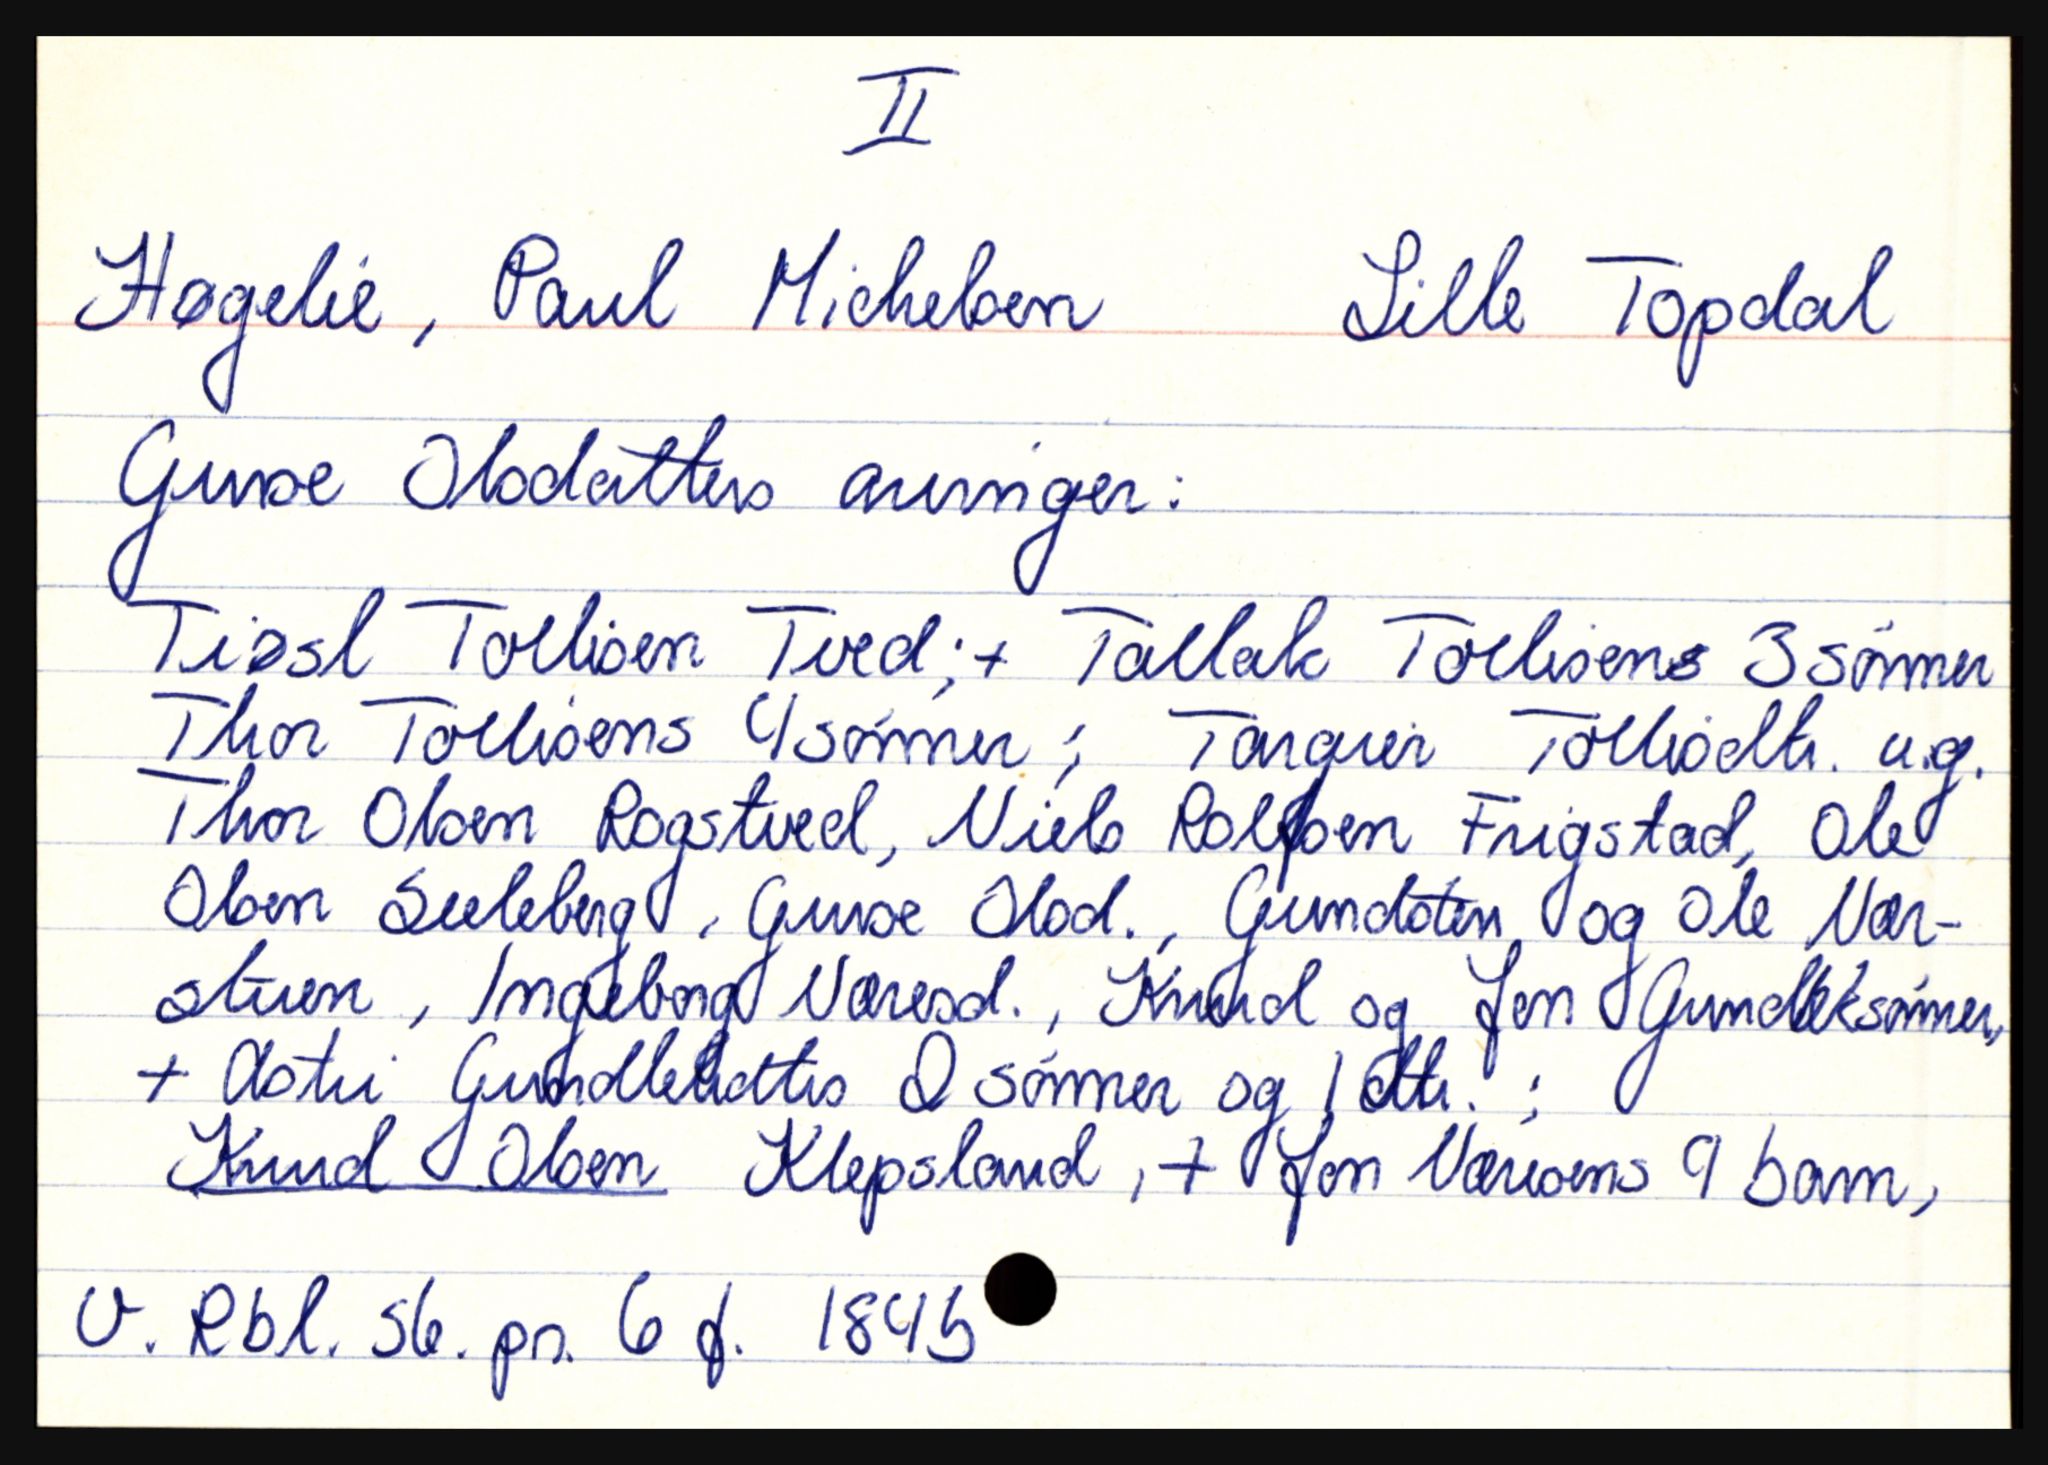 II
Høgelie, Paul Michelsen Lille Topdal
Gunvе Olsdatters arvinger:
Tiøsl Tollisen Tved; + Tallak Tollisens 3 sönner
Thor Tollisens 4 sönner; Targier Tollisdtr. u.g.
Thor Olsen Rogstved, Niels Rolfsen Frigstad, Ole
Olsen Seeleberg, Gunve Olsd., Gundsten og Ole Nær-
stuen, Ingeborg Næresd., Knud og Jon Gundleksönner,
+ Astri Gundleksdtrs 2 sönner og 1 dtr.;
Knud Olsen Klepsland, + Jon Næresens 9 barn,
V. Rbl. Sk. pr. 6 f. 184b